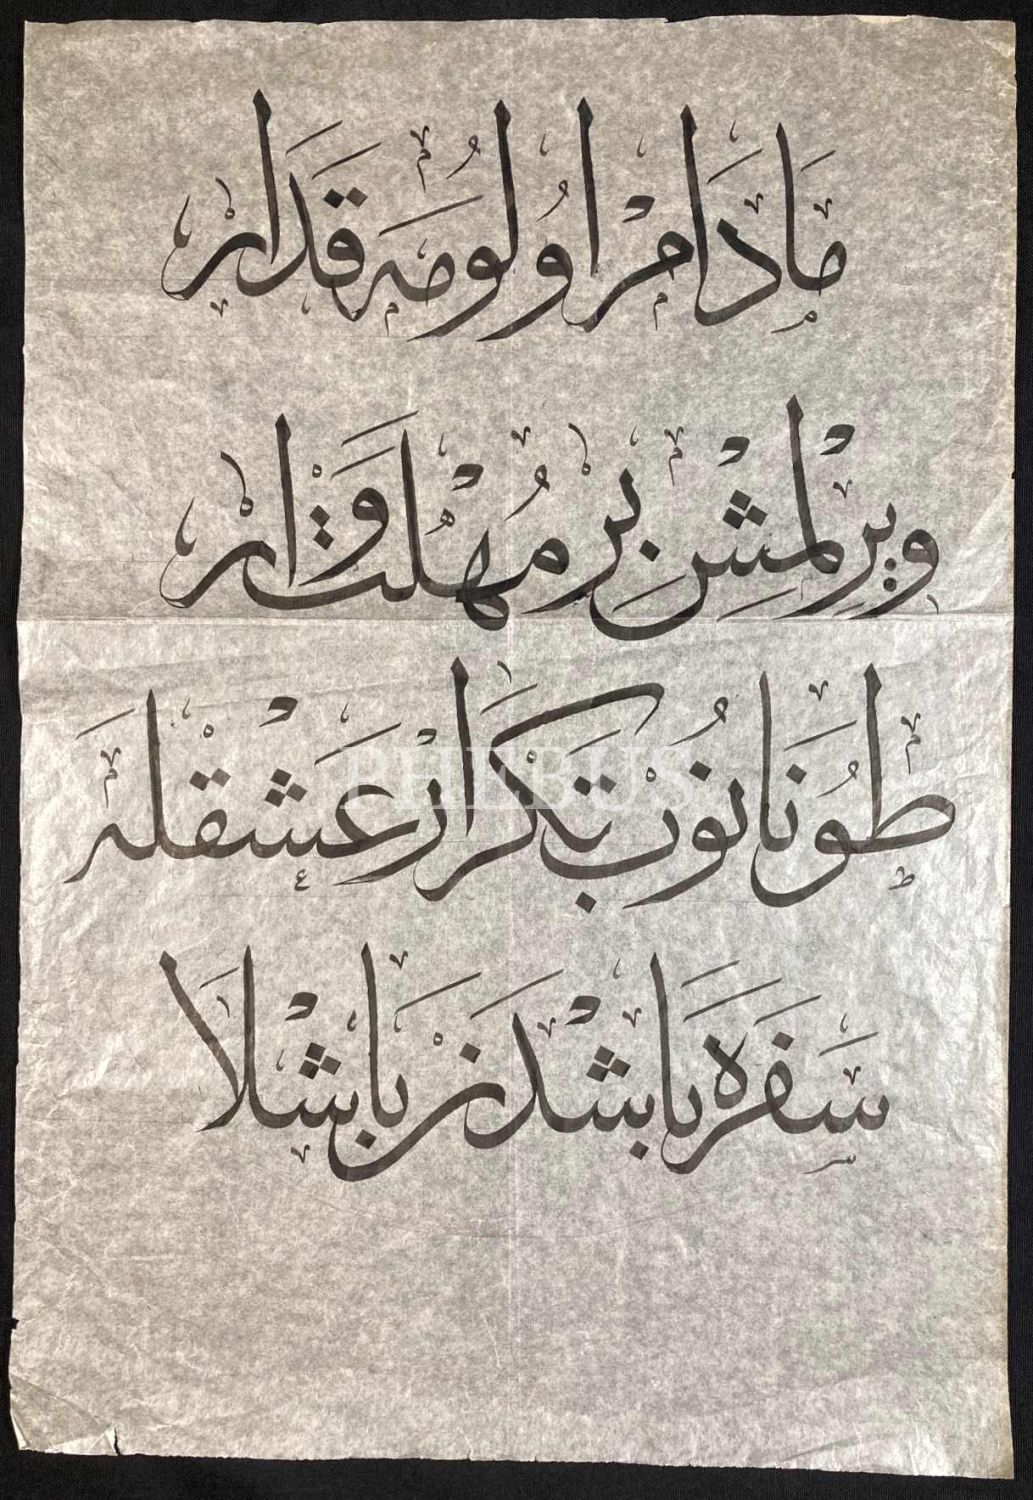 مَادَامْ اُولُومَه قَدَارْ
وِيرِلْمِشْ بِرْ مُهْلَتْ وَارْ
طُونَانُوبْ تَكْرَارْ عَشْقْلَه
سَفَرَه بَاشْدَنْ بَاشْلَا
PHEBUS